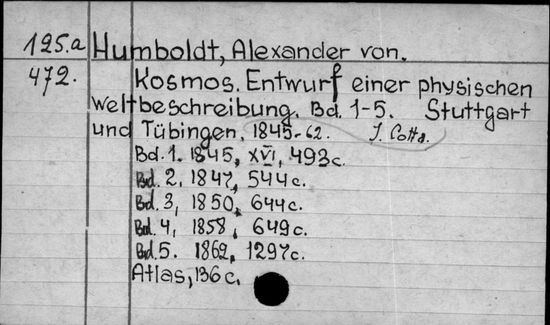 125.a Humboldt, Alexander von.
472. Kosmos. Entwurf einer physischen
Weltbeschreibung. Bd. 1-5. Stuttgart
und Tübingen. 1845-62. J. Cotta.
Bd. 1. 1845, XVI, 493c.
Bd. 2, 1847, 544c.
Bd. 3, 1850, 644c.
Bd. 4, 1858, 649c.
Bd. 5. 1862, 1297c.
Atlas, 136 c.